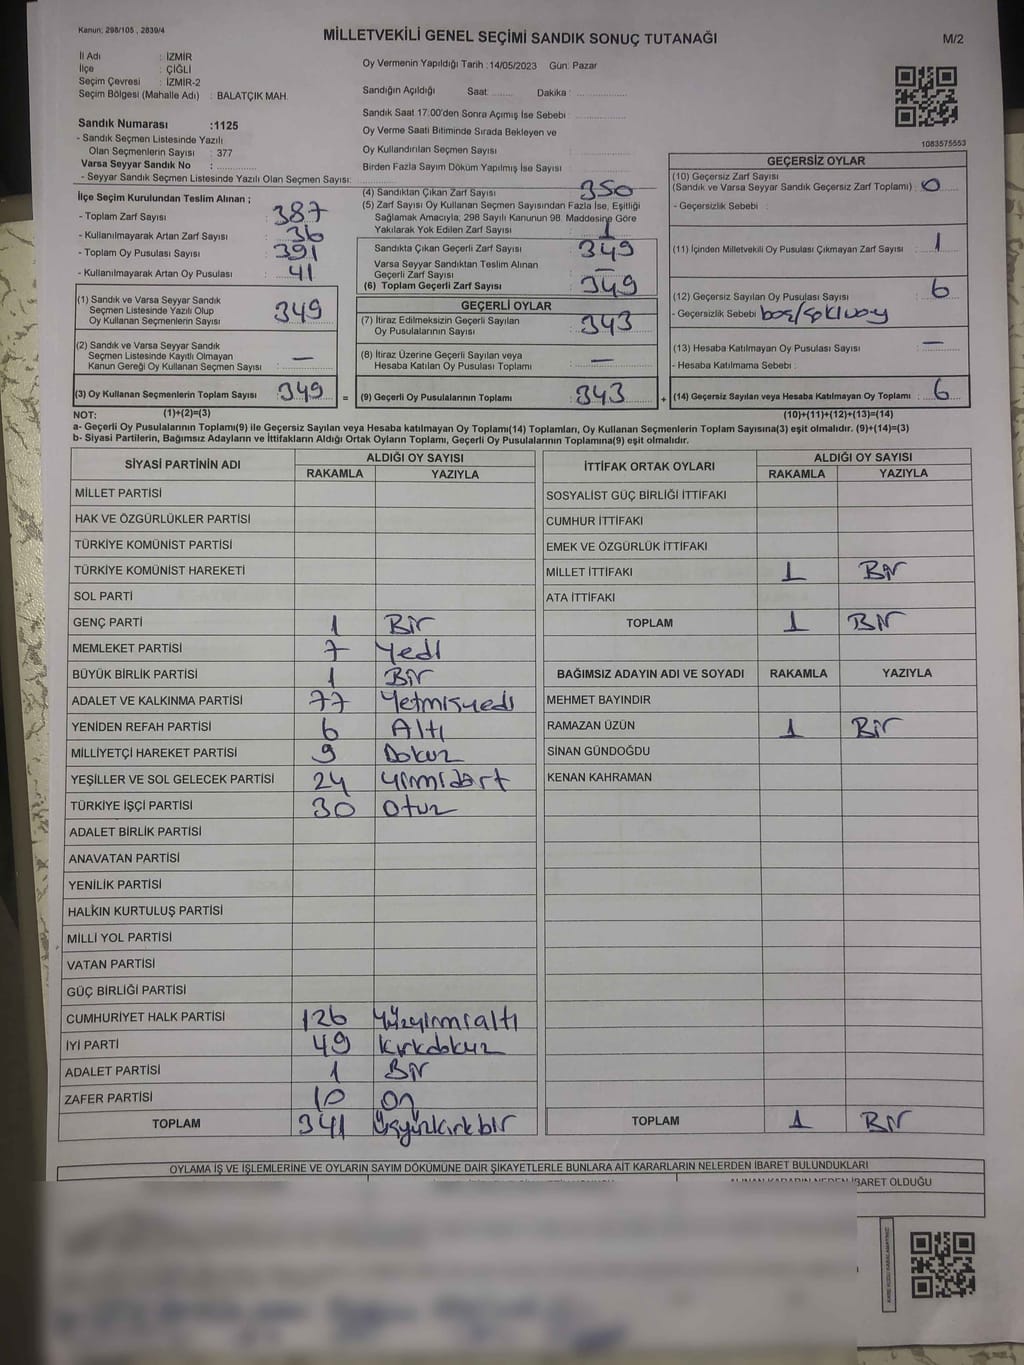 Kanun: 298/105 , 2839/4
MİLLETVEKİLİ GENEL SEÇİMİ SANDIK SONUÇ TUTANAĞI
M/2
İl Adı : İZMİR
İlçe : ÇİĞLİ
Seçim Çevresi : İZMİR-2
Seçim Bölgesi (Mahalle Adı) : BALATÇIK MAH.
Sandık Numarası :1125
- Sandık Seçmen Listesinde Yazılı
Olan Seçmenlerin Sayısı : 377
Varsa Seyyar Sandık No :
- Seyyar Sandık Seçmen Listesinde Yazılı Olan Seçmen Sayısı:
Oy Vermenin Yapıldığı Tarih :14/05/2023 Gün: Pazar
Sandığın Açıldığı Saat: Dakika :
Sandık Saat 17:00'den Sonra Açımış İse Sebebi :
Oy Verme Saati Bitiminde Sırada Bekleyen ve
Oy Kullandırılan Seçmen Sayısı :
Birden Fazla Sayım Döküm Yapılmış İse Sayısı :
1083575553
İlçe Seçim Kurulundan Teslim Alınan ;
- Toplam Zarf Sayısı : 387
- Kullanılmayarak Artan Zarf Sayısı : 36
- Toplam Oy Pusulası Sayısı : 391
- Kullanılmayarak Artan Oy Pusulası : 41
(1) Sandık ve Varsa Seyyar Sandık
Seçmen Listesinde Yazılı Olup
Oy Kullanan Seçmenlerin Sayısı : 349
(2) Sandık ve Varsa Seyyar Sandık
Seçmen Listesinde Kayıtlı Olmayan
Kanun Gereği Oy Kullanan Seçmen Sayısı : —
(3) Oy Kullanan Seçmenlerin Toplam Sayısı : 349 =
(4) Sandıktan Çıkan Zarf Sayısı : 350
(5) Zarf Sayısı Oy Kullanan Seçmen Sayısından Fazla İse, Eşitliği
Sağlamak Amacıyla; 298 Sayılı Kanunun 98. Maddesine Göre
Yakılarak Yok Edilen Zarf Sayısı : 1
Sandıkta Çıkan Geçerli Zarf Sayısı : 349
Varsa Seyyar Sandıktan Teslim Alınan
Geçerli Zarf Sayısı : —
(6) Toplam Geçerli Zarf Sayısı : 349
GEÇERLİ OYLAR
(7) İtiraz Edilmeksizin Geçerli Sayılan
Oy Pusulalarının Sayısı : 343
(8) İtiraz Üzerine Geçerli Sayılan veya
Hesaba Katılan Oy Pusulası Toplamı : —
(9) Geçerli Oy Pusulalarının Toplamı : 343 +
GEÇERSİZ OYLAR
(10) Geçersiz Zarf Sayısı
(Sandık ve Varsa Seyyar Sandık Geçersiz Zarf Toplamı) : 0
- Geçersizlik Sebebi :
(11) İçinden Milletvekili Oy Pusulası Çıkmayan Zarf Sayısı : 1
(12) Geçersiz Sayılan Oy Pusulası Sayısı : 6
- Geçersizlik Sebebi :
(13) Hesaba Katılmayan Oy Pusulası Sayısı : —
- Hesaba Katılmama Sebebi :
(14) Geçersiz Sayılan veya Hesaba Katılmayan Oy Toplamı : 6
NOT: (1)+(2)=(3) (10)+(11)+(12)+(13)=(14)
a- Geçerli Oy Pusulalarının Toplamı(9) ile Geçersiz Sayılan veya Hesaba katılmayan Oy Toplamı(14) Toplamları, Oy Kullanan Seçmenlerin Toplam Sayısına(3) eşit olmalıdır. (9)+(14)=(3)
b- Siyasi Partilerin, Bağımsız Adayların ve İttifakların Aldığı Ortak Oyların Toplamı, Geçerli Oy Pusulalarının Toplamına(9) eşit olmalıdır.
SİYASİ PARTİNİN ADI ALDIĞI OY SAYISI
RAKAMLA YAZIYLA
MİLLET PARTİSİ
HAK VE ÖZGÜRLÜKLER PARTİSİ
TÜRKİYE KOMÜNİST PARTİSİ
TÜRKİYE KOMÜNİST HAREKETİ
SOL PARTİ
GENÇ PARTİ 1 Bir
MEMLEKET PARTİSİ 7 Yedi
BÜYÜK BİRLİK PARTİSİ 1 Bir
ADALET VE KALKINMA PARTİSİ 77 Yetmişyedi
YENİDEN REFAH PARTİSİ 6 Altı
MİLLİYETÇİ HAREKET PARTİSİ 9 Dokuz
YEŞİLLER VE SOL GELECEK PARTİSİ 24 Yirmidört
TÜRKİYE İŞÇİ PARTİSİ 30 Otuz
ADALET BİRLİK PARTİSİ
ANAVATAN PARTİSİ
YENİLİK PARTİSİ
HALKIN KURTULUŞ PARTİSİ
MİLLİ YOL PARTİSİ
VATAN PARTİSİ
GÜÇ BİRLİĞİ PARTİSİ
CUMHURİYET HALK PARTİSİ 126 Yüzyirmialtı
İYİ PARTİ 49 Kırkdokuz
ADALET PARTİSİ 1 Bir
ZAFER PARTİSİ 10 On
TOPLAM 341 Üçyüzkırkbir
İTTİFAK ORTAK OYLARI ALDIĞI OY SAYISI
RAKAMLA YAZIYLA
SOSYALİST GÜÇ BİRLİĞİ İTTİFAKI
CUMHUR İTTİFAKI
EMEK VE ÖZGÜRLÜK İTTİFAKI
MİLLET İTTİFAKI 1 Bir
ATA İTTİFAKI
TOPLAM 1 Bir
BAĞIMSIZ ADAYIN ADI VE SOYADI RAKAMLA YAZIYLA
MEHMET BAYINDIR
RAMAZAN ÜZÜN 1 Bir
SİNAN GÜNDOĞDU
KENAN KAHRAMAN
TOPLAM 1 Bir
OYLAMA İŞ VE İŞLEMLERİNE VE OYLARIN SAYIM DÖKÜMÜNE DAİR ŞİKAYETLERLE BUNLARA AİT KARARLARIN NELERDEN İBARET BULUNDUKLARI
İBARET OLDUĞU